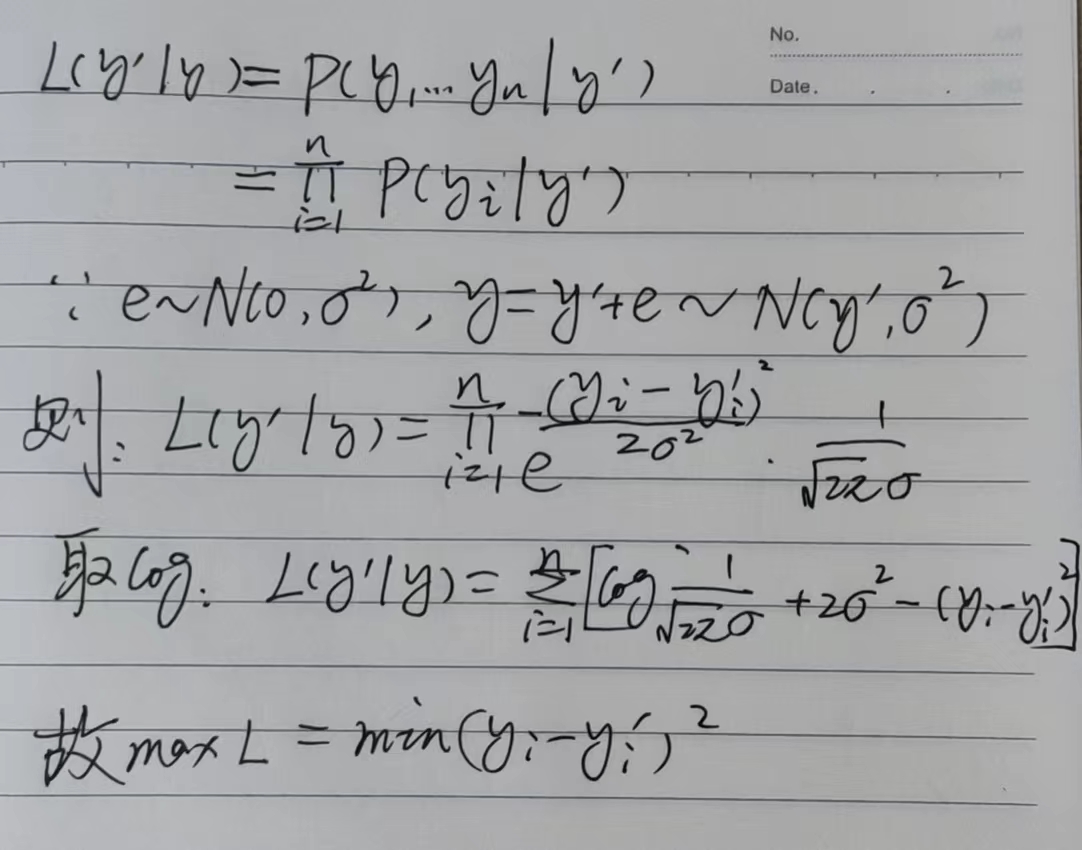 No.
Date. . .
L(y'|y) = P(y₁...yₙ|y')
= ∏ⁿᵢ₌₁ P(yᵢ|y')
∵ e~N(0,σ²), y=y'+e ~ N(y',σ²)
则: L(y'|y) = ∏ⁿᵢ₌₁ e^(-(yᵢ-y'ᵢ)²/2σ²) · 1/√2π σ
取log. L(y'|y) = Σⁿᵢ₌₁ [log 1/√2π σ + 2σ² - (yᵢ-y'ᵢ)²]
故 max L = min(yᵢ-yᵢ')²